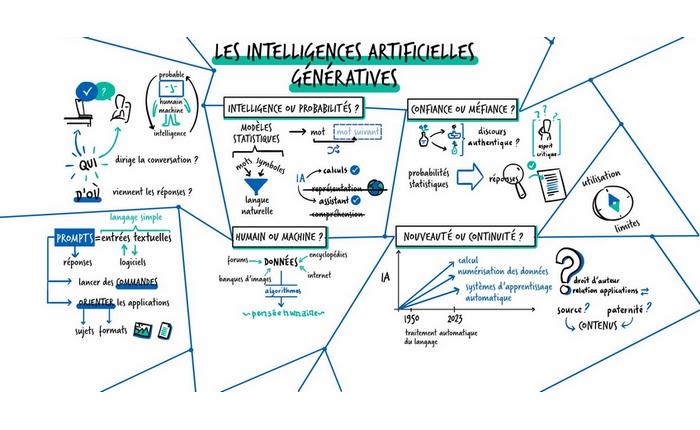 LES INTELLIGENCES ARTIFICIELLES
GÉNÉRATIVES
?
probable
humain
machine
intelligence
QUI
dirige la conversation ?
D'OÙ
viennent les réponses ?
INTELLIGENCE OU PROBABILITÉS ?
MODÈLES
STATISTIQUES
mot
mot suivant
mots
symboles
langue
naturelle
IA
calculs
représentation
assistant
compréhension
CONFIANCE OU MÉFIANCE ?
discours
authentique ?
? ? ?
esprit
critique
probabilités
statistiques
réponses
utilisation
limites
langage simple
PROMPTS = entrées textuelles
réponses
logiciels
lancer des COMMANDES
ORIENTER les applications
sujets
formats
HUMAIN OU MACHINE ?
forums
encyclopédies
DONNÉES
banques d'images
internet
algorithmes
~pensée humaine~
NOUVEAUTÉ OU CONTINUITÉ ?
IA
calcul
numérisation des données
systèmes d'apprentissage
automatique
1950
2023
traitement automatique
du langage
?
droit d'auteur
relation applications
source ?
paternité ?
CONTENUS